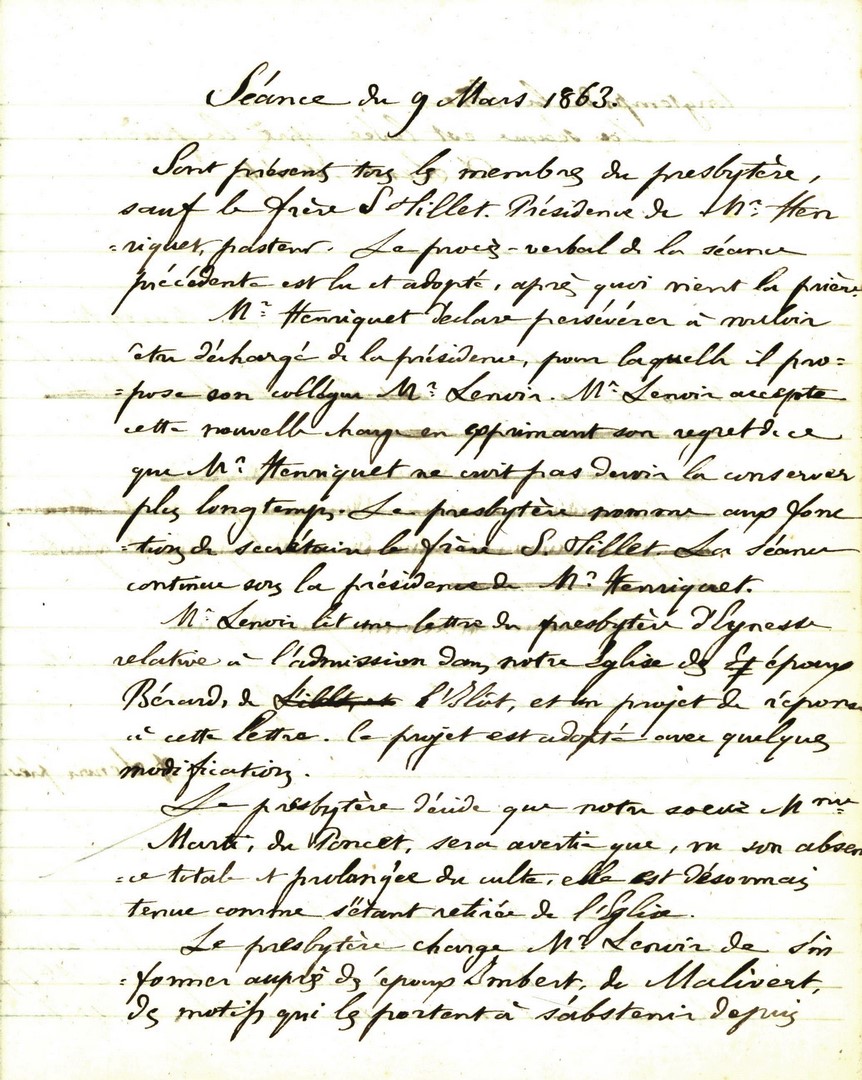 Séance du 9 Mars 1863.
Sont présents tous les membres du presbytère,
sauf le frère S. Tillet. Présidence de Mr. Hen
=riquet, pasteur. Le procès-verbal de la séance
précédente est lu et adopté, après quoi vient la prière.
Mr. Henriquet déclare persévérer à vouloir
être déchargé de la présidence, pour laquelle il pro=
=pose son collègue Mr. Lenoir. Mr. Lenoir accepte
cette nouvelle charge en exprimant son regret de ce
que Mr. Henriquet ne croit pas devoir la conserver
plus longtemps. Le presbytère nomme aux fonc
=tions de secrétaire le frère S. Tillet. La séance
continue sous la présidence de Mr. Henriquet.
Mr. Lenoir lit une lettre du presbytère d'Eynesse
relative à l'admission dans notre Eglise des époux
Bérard, de l'Blot, et un projet de répons
à cette lettre. Ce projet est adopté avec quelques
modifications.
Le presbytère décide que notre soeur Mme
Marti, du Poncet, sera avertie que, vu son absen
=ce totale et prolongée du culte, elle est désormais
tenue comme s'étant retirée de l'Eglise.
Le presbytère charge Mr. Lenoir de s'in
=former auprès des époux Imbert, de Malivert,
des motifs qui les portent à s'abstenir depuis